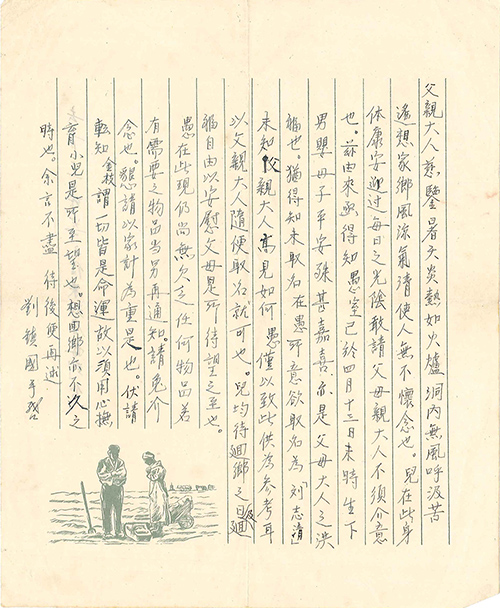 父親大人慈鑒暑天炎熱如火爐洞內無風呼汲苦
遙想家鄉風涼氣清使人無不懷念也。兒在此身
体康安迎过每日之光陰敢請父母親大人不須介意
也。茲由來函得知愚室已於四月十三日未時生下
男嬰母子平安殊甚嘉喜亦是父母大人之洪
福也。猶得知未取名在愚所意欲取名為「刘志清」
未知父親大人高見如何愚僅以致此供為參考耳
以父親大人隨便取名就可也。兒均待迴鄉之日迴復
福自由以安慰父母是所待望之至也。
愚在此現仍尚無欠乏任何物品若
有需要之物品尚另再通知。請免介
念也。懇請以家計為重是也。伏請
転知金枝謂一切皆是命運故以須用心撫
育小兒是所至望也。想囬鄉亦不久之
時也。余言不盡 待後便再述
劉鎮國